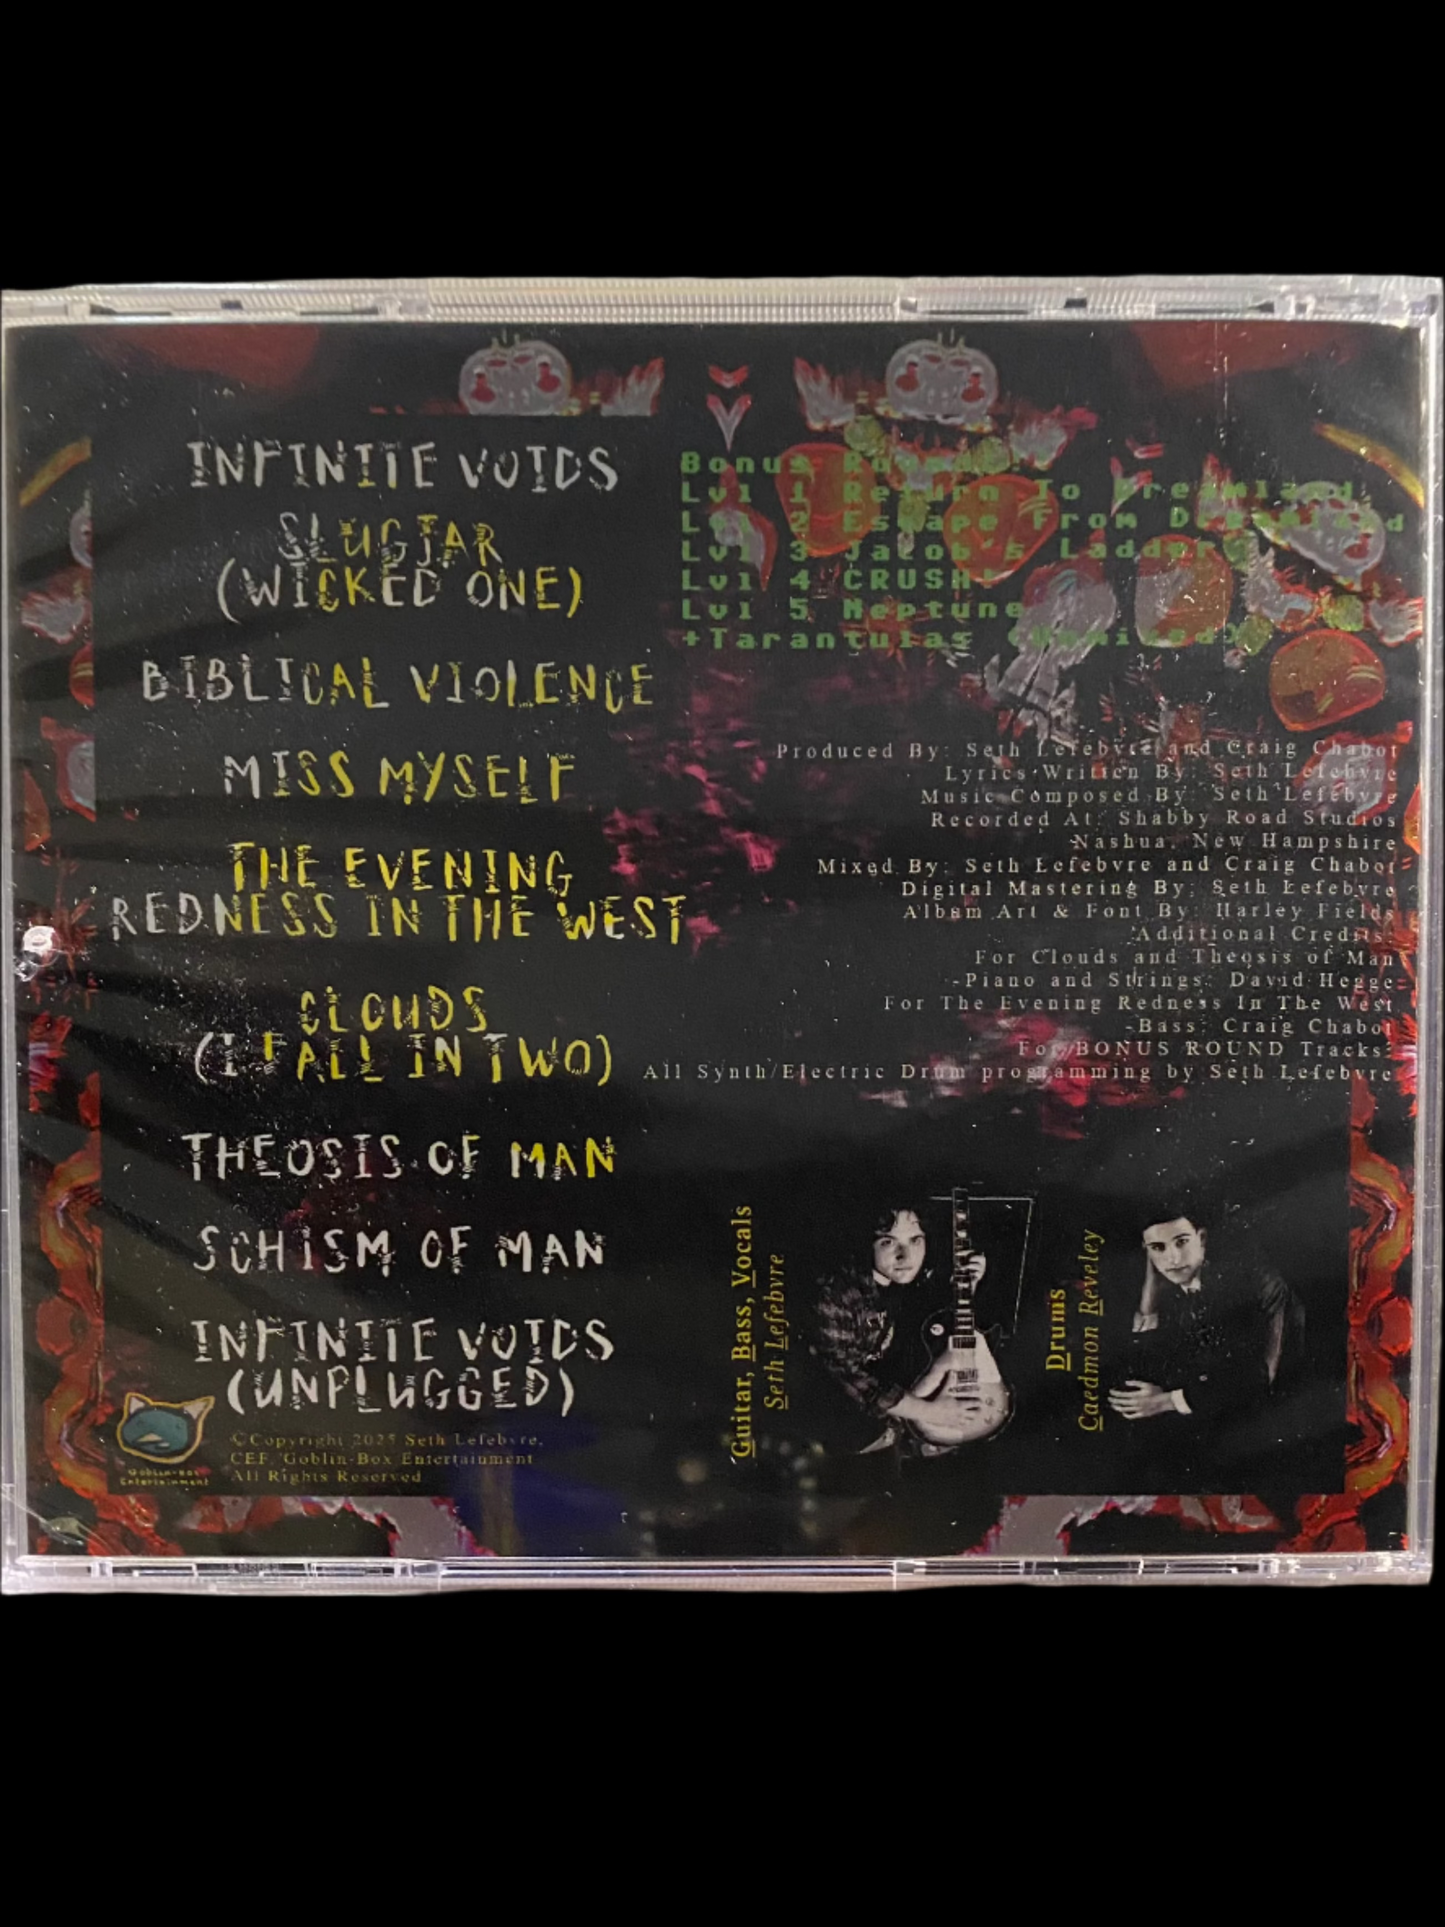 INFINITE VOIDS
SLUGJAR
(WICKED ONE)
BIBLICAL VIOLENCE
MISS MYSELF
THE EVENING
REDNESS IN THE WEST
CLOUDS
(I FALL IN TWO)
THEOSIS OF MAN
SCHISM OF MAN
INFINITE VOIDS
(UNPLUGGED)
Goblin-Box
Entertainment
©Copyright 2025 Seth Lefebvre,
CEF, Goblin-Box Entertainment
All Rights Reserved
Bonus Round:
Lvl 1 Return To Dreamland
Lvl 2 Escape From Dreamland
Lvl 3 Jacob's Ladder
Lvl 4 CRUSH!
Lvl 5 Neptune
+Tarantulas
Produced By: Seth Lefebvre and Craig Chabot
Lyrics Written By: Seth Lefebvre
Music Composed By: Seth Lefebvre
Recorded At: Shabby Road Studios
-Nashua, New Hampshire
Mixed By: Seth Lefebvre and Craig Chabot
Digital Mastering By: Seth Lefebvre
Album Art & Font By: Harley Fields
Additional Credits:
For Clouds and Theosis of Man
-Piano and Strings: David Hegge
For The Evening Redness In The West
-Bass: Craig Chabot
For BONUS ROUND Tracks:
All Synth/Electric Drum programming by Seth Lefebvre
Guitar, Bass, Vocals
Seth Lefebvre
Drums
Caedmon Reveley